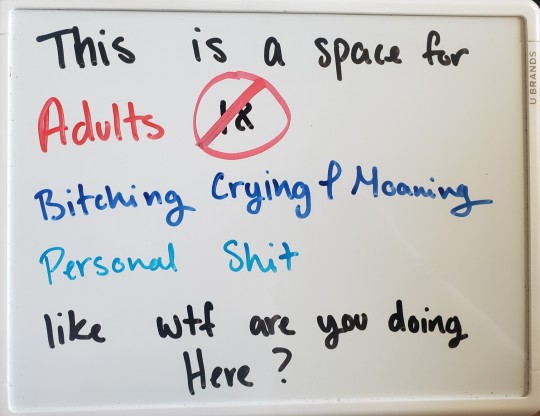 This is a space for
Adults 18
Bitching Crying & Moaning
Personal Shit
like wtf are you doing
Here?
U BRANDS